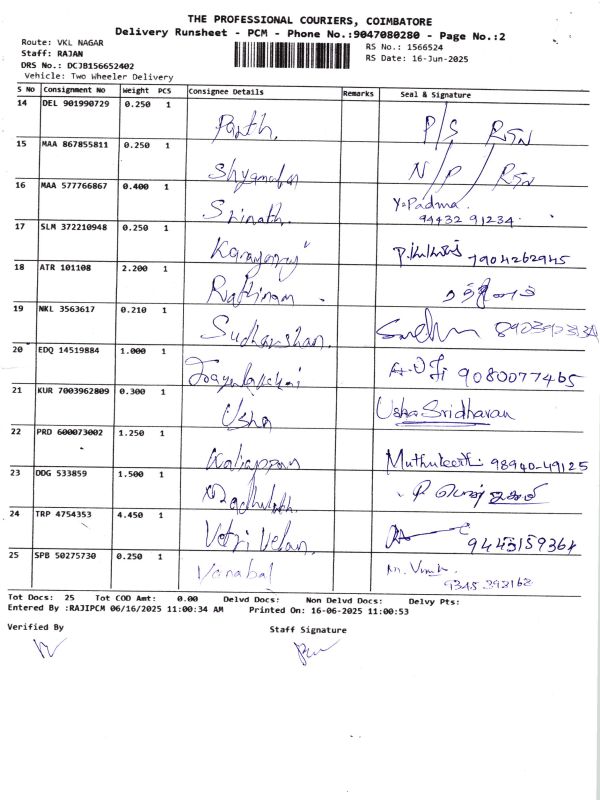 THE PROFESSIONAL COURIERS, COIMBATORE
Delivery Runsheet - PCM - Phone No.:9047080280 - Page No.:2
Route: VKL NAGAR
RS No.: 1566524
Staff: RAJAN
RS Date: 16-Jun-2025
DRS No.: DCJB156652402
Vehicle: Two Wheeler Delivery
S No Consignment No Weight PCS Consignee Details Remarks Seal & Signature
14 DEL 901990729 0.250 1 Parth. P/S RTN
15 MAA 867855811 0.250 1 N/P RTN
16 MAA 577766867 0.400 1 Srinath. Y. Padma. 94432 91234
17 SLM 372210948 0.250 1 7904262945
18 ATR 101108 2.200 1 Rathinam
19 NKL 3563617 0.210 1 Sudharshan.
20 EDQ 14519884 1.000 1 9080077465
21 KUR 7003962809 0.300 1 Usha Usha Sridharan
22 PRD 600073002 1.250 1 Kaliappan 98940-49125
23 DDG 533859 1.500 1
24 TRP 4754353 4.450 1 Vetri Velan. 9443159364
25 SPB 50275730 0.250 1 Vanabal 9345 392162
Tot Docs: 25 Tot COD Amt: 0.00 Delvd Docs: Non Delvd Docs: Delvy Pts:
Entered By :RAJIPCM 06/16/2025 11:00:34 AM Printed On: 16-06-2025 11:00:53
Verified By Staff Signature